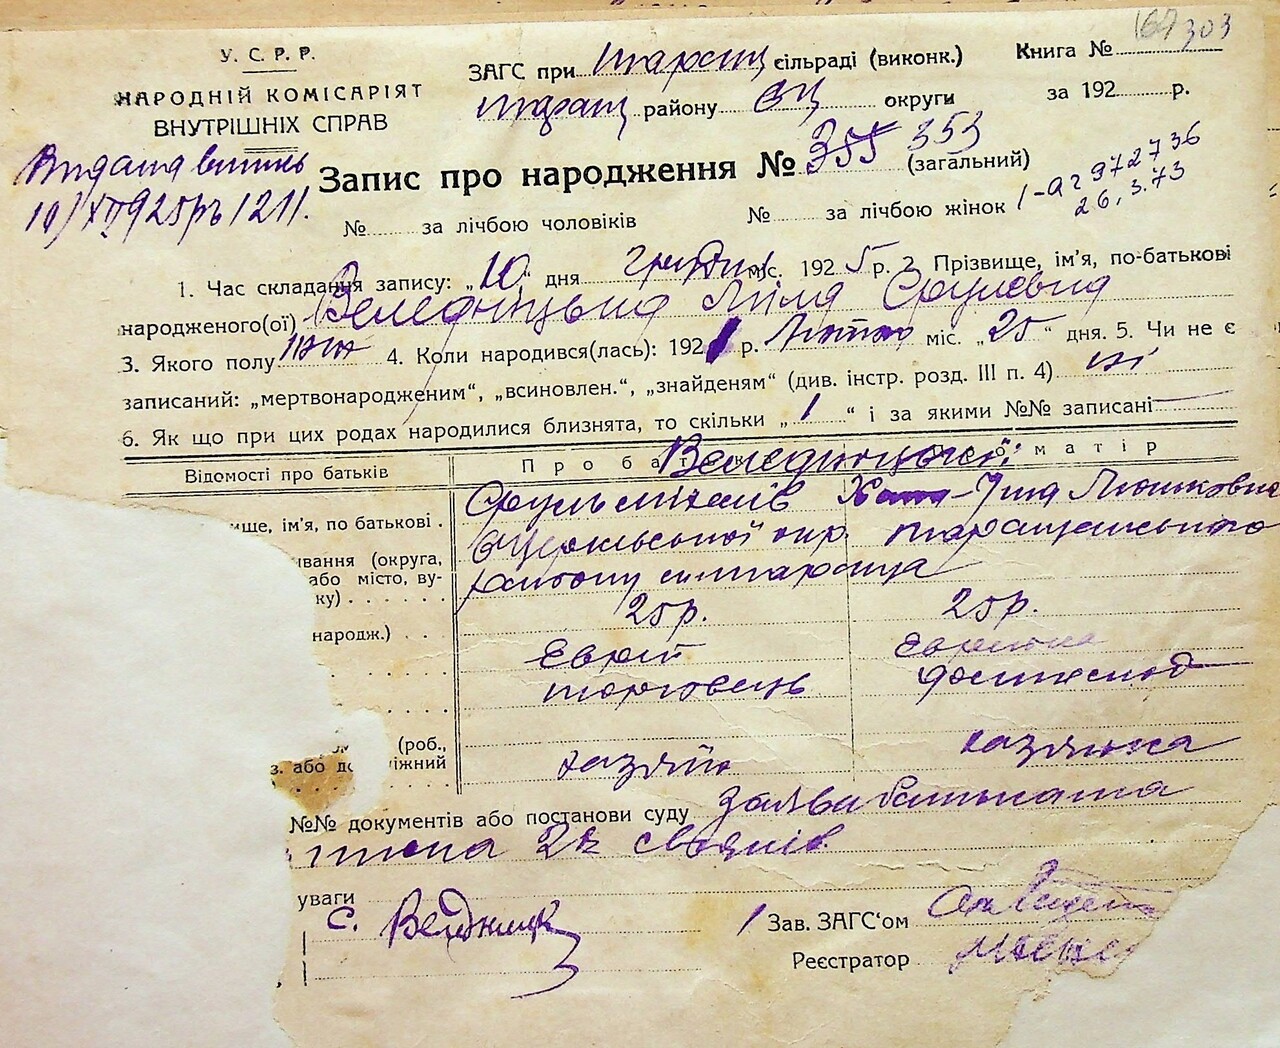 167 303
У. С. Р. Р.
НАРОДНІЙ КОМІСАРІЯТ
ВНУТРІШНІХ СПРАВ
ЗАГС при Таращ сільраді (виконк.)
Книга №
Таращ району БЦ округи
за 192 р.
Видана випись
10/XII 925р № 1211.
Запис про народження № 355 353 (загальний)
№ за лічбою чоловіків № за лічбою жінок
972736
26.3.73
1. Час складання запису: „10" дня грудня міс. 1925 р. 2. Прізвище, ім'я, по-батькові
народженого(ої) Веледніцька Ліля Срулевна
3. Якого полу жін 4. Коли народився(лась): 1921 р. Лютого міс. „25" дня. 5. Чи не є
записаний: „мертвонародженим", „всиновлен.", „знайденям" (див. інстр. розд. III п. 4) ні
6. Як що при цих родах народилися близнята, то скільки „1" і за якими №№ записані
Відомості про батьків
Про ба матір
Веледницькі:
Сруль
вище, ім'я, по батькові .
Білоцерківської окр. Таращанського
ивання (округа,
або місто, ву-
ку)
району м. Тараща
народж.)
25р. 25р.
Єврей Єврейка
торговець
(роб.,
з. або до іжний
хазяїн хазяйка
№№ документів або постанови суду Заява батька та
2х свідків
уваги
С. Веледницк
Зав. ЗАГС'ом
Реєстратор